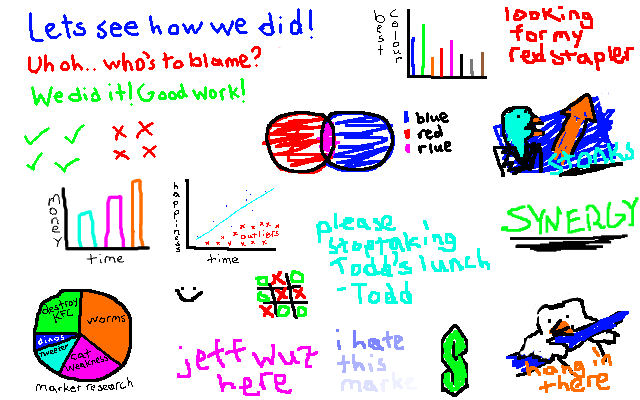 Lets see how we did!
Uh oh.. who's to blame?
We did it! Good work!
best
colour
looking
for my
red stapler
blue
red
rlue
stonks
money
time
happiness
outliers
time
please
stop taking
Todd's lunch
- Todd
SYNERGY
destroy
KFC
worms
dinos
tweeter
cat
weakness
market research
X O
O X X
O X O
jeff wuz
here
i hate
this
marke
hang in
there